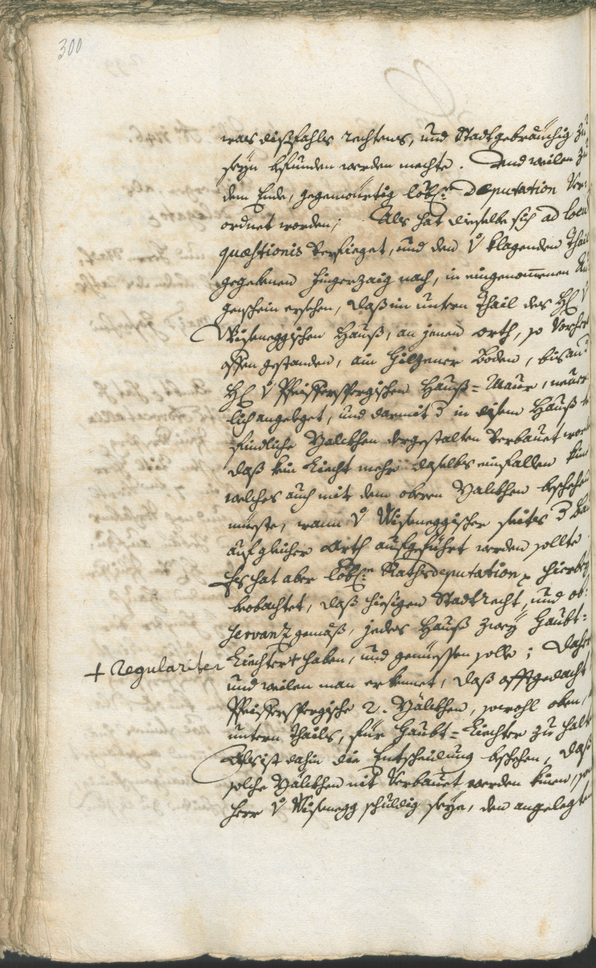 300
was dißfahls rechtens, und Stadtgebreuchig zu
seyn befunden werden mechte. Und weilen zu
dem Ende, gegenwürtig löbl: Deputation Ver-
ordnet worden; Als hat dieselbe sich ad locum
quæstionis Verfieget, und den V klagenden Theil
gegebenen Fingerzaig nach, in eingenommenen Au-
genschein ersehen, daß in untern Thail des H: V
Wiseneggischen Hauß, an jenen orth, so Vorher
offen gestanden, ain Hilzener Boden, biß an
H: V Pfeisserspergischen Hauß-Maur, neuer-
lich angelegt, und darmit 3 in disem Hauß be-
findliche Palckhen dergestalten Verbauet worden
daß kein Liecht mehr daselbs einfallen kan
welches auch mit dem obern Palckhen beschehen
mieste, wann V Wiseneggischer seits 3
auf gleicher Arth aufgeführt werden sollte.
Es hat aber löbl: Rathsdeputation hierbey
beobachtet, daß hiesigen Stadtrecht, und ob-
servanz gemäß, jedes Hauß zwey Haubt-
+ Regulariter
Liechter + haben, und geniessen solle; Daher
und weilen man erkennet, daß offtgedacht
Pfeisserspergische 2. Palckhen, sowohl oben,
untern Thails, für Haubt-Liechter zu halten
Als ist dahin die Entscheidung beschehen, daß
solche Palckhen nit Verbauet werden kinen,
Herr V Wisenegg schuldig seye, den angelegten